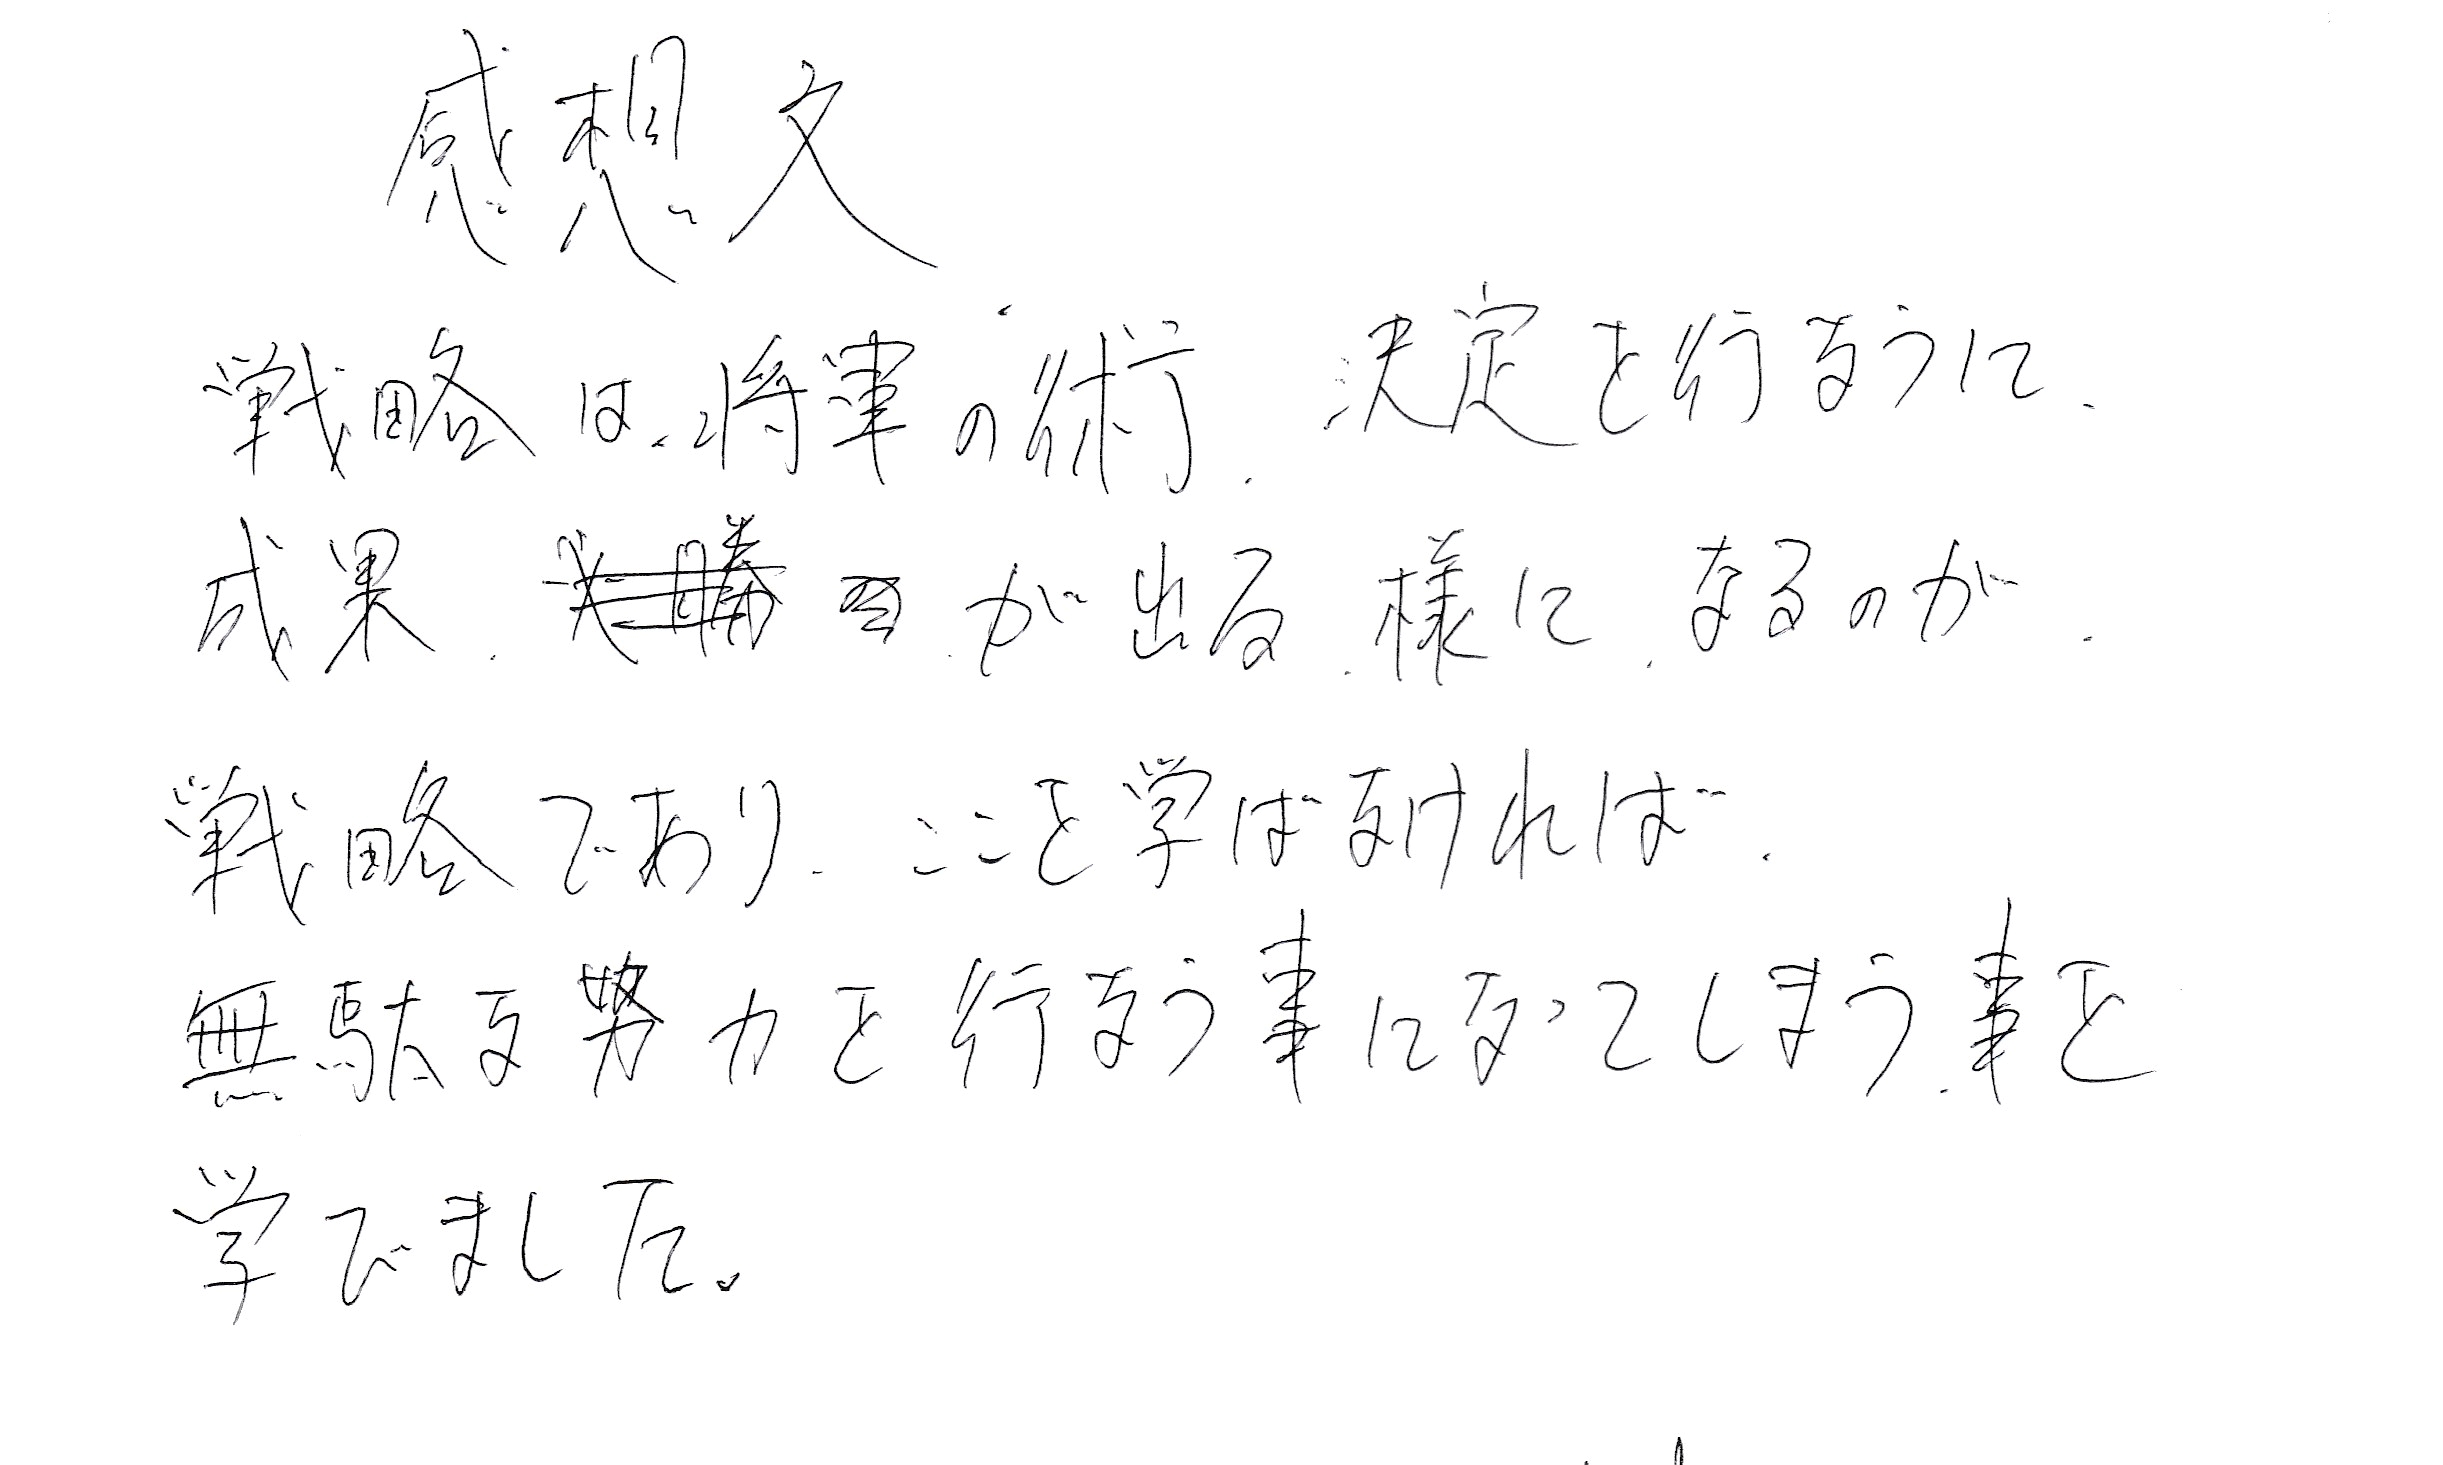 感想文
戦略は、将軍の術、決定を行なうに、
成果、が出る、様に、なるのが、
戦略であり、ここを学ばなければ、
無駄な努力を行なう事になってしまう、事を
学びました。